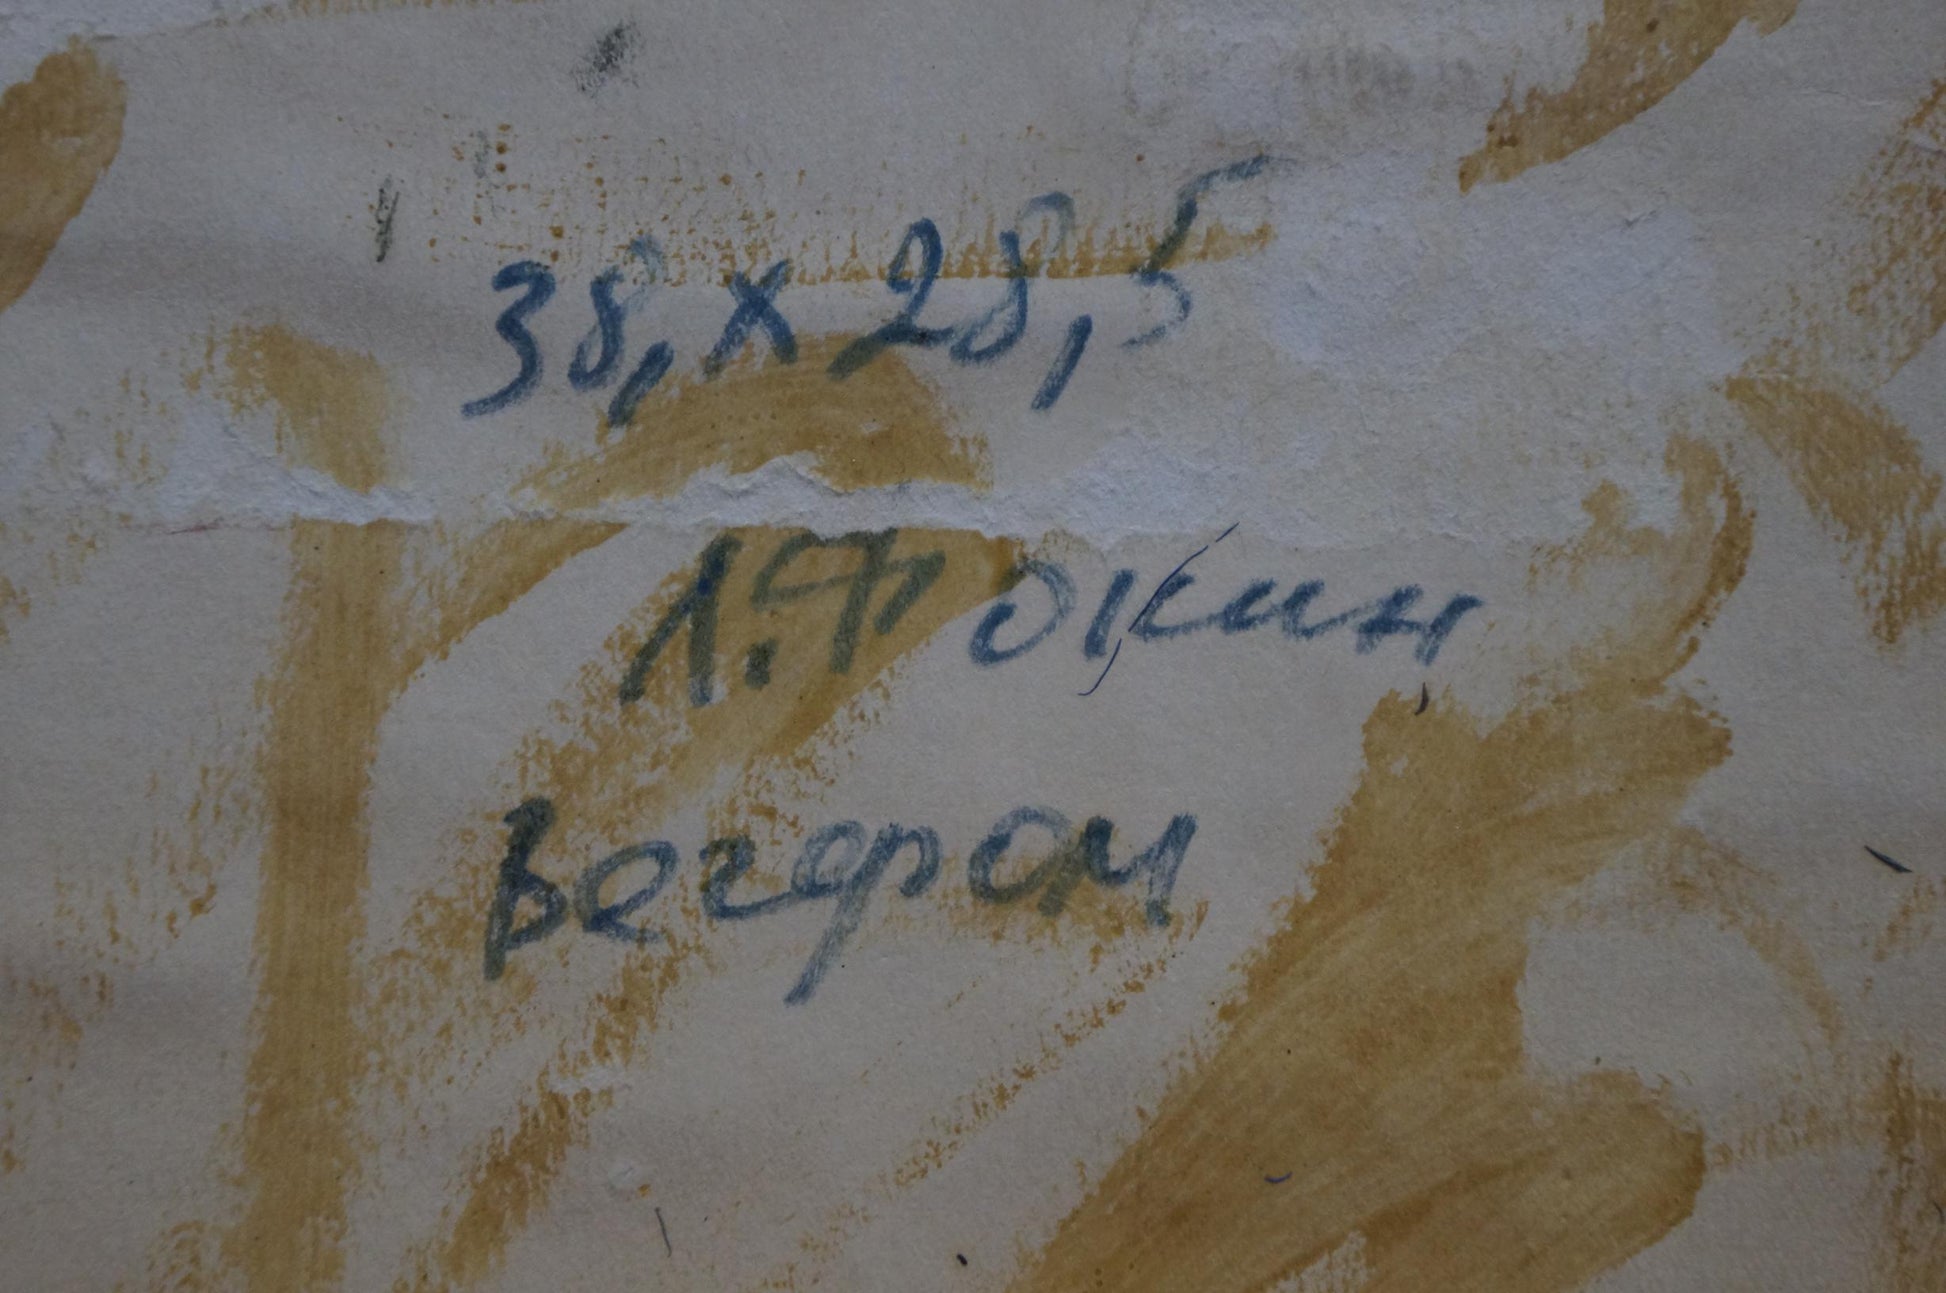 38, x 28,5
Л. Фокин
Вечером